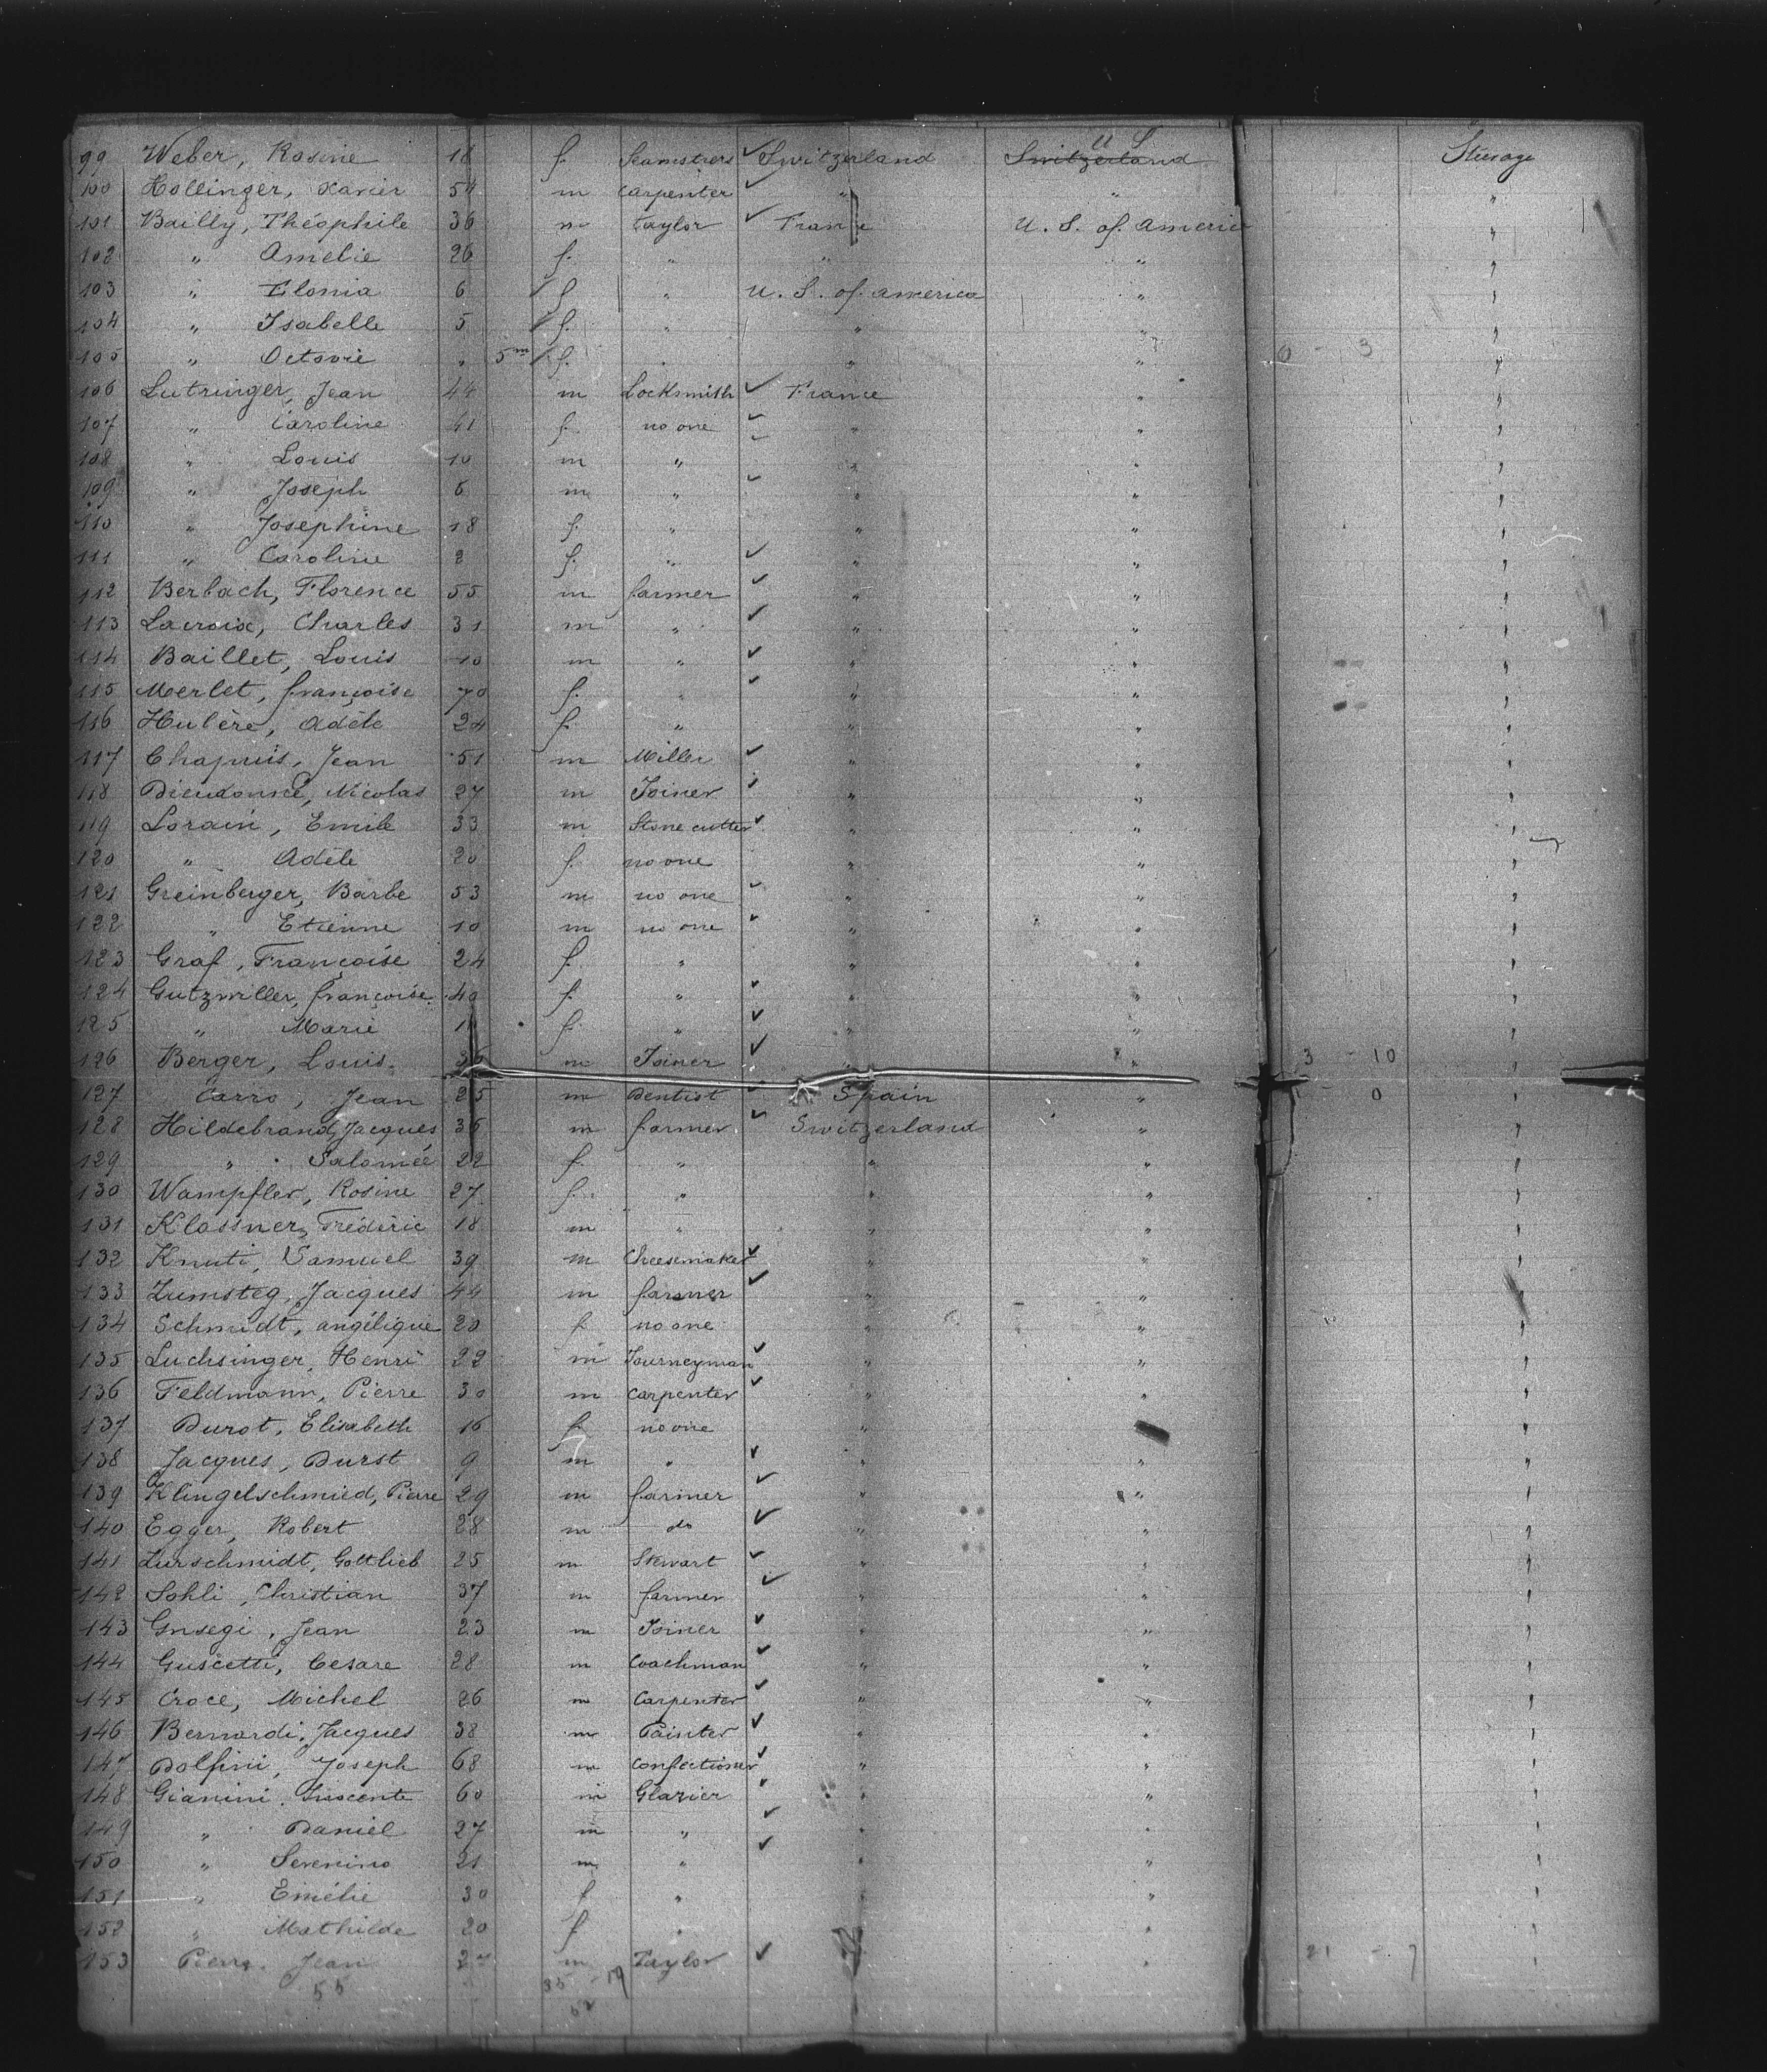 99 Weber, Rosine 18 f. Seamstress ✓ Switzerland Switzerland U S Steerage
100 Hollinger, Xavier 54 m Carpenter ✓ " " "
101 Bailly, Théophile 36 m Taylor ✓ France U. S. of America "
102 " Amélie 26 f. " " " "
103 " Elonia 6 f " U. S. of America " "
104 " Isabelle 5 f. " " " "
105 " Octavie " 5 m f. " " " 6 - 3 "
106 Lutringer, Jean 44 m Locksmith ✓ France " "
107 " Caroline 41 f. no one ✓ " " "
108 " Louis 10 m " ✓ " " "
109 " Joseph 6 m " ✓ " " "
110 " Josephine 18 f. " " " "
111 " Caroline 2 f. " ✓ " " "
112 Berbach, Florence 55 m farmer ✓ " " "
113 Lacroix, Charles 31 m " ✓ " " "
114 Baillet, Louis 10 m " ✓ " " "
115 Merlet, françoise 70 f. " ✓ " " "
116 Hulère, Adèle 24 f. " " " "
117 Chapuis, Jean 51 m Miller ✓ " " "
118 Dieudonné, Nicolas 27 m Joiner ✓ " " "
119 Lorain, Emile 33 m Stone cutter ✓ " " "
120 " Adèle 20 f. no one " " "
121 Greinberger, Barbe 53 m no one ✓ " " "
122 " Etienne 10 m no one ✓ " " "
123 Graf, Françoise 24 f. " " " "
124 Gutzwiller, françoise 40 f. " ✓ " " "
125 " Marie f. " ✓ " " "
126 Berger, Louis 36 m Joiner ✓ " " 3 - 10 "
127 Carro, Jean 25 m Dentist ✓ Spain " - 0 "
128 Hildebrand, Jacques 36 m farmer ✓ Switzerland " "
129 " Salomée 22 f. " " " "
130 Wampfler, Rosine 27 f. " " " "
131 Klossner, Frédéric 18 m " " " "
132 Knuti, Samuel 39 m Cheesemaker ✓ " " "
133 Zumsteg, Jacques 44 m farmer ✓ " " "
134 Schmidt, angélique 20 f no one " " "
135 Luchsinger, Henri 22 m Journeyman ✓ " " "
136 Feldmann, Pierre 30 m Carpenter ✓ " " "
137 Durst, Elisabeth 16 f. no one " "
138 Jacques, Durst 9 m " ✓ " " "
139 Klingelschmied, Pierre 29 m farmer ✓ " " "
140 Egger, Robert 28 m do ✓ " " "
141 Zurschmidt, Gottlieb 25 m Stewart ✓ " " "
142 Sohli, Christian 37 m farmer ✓ " " "
143 Gnsegi, Jean 23 m Joiner ✓ " " "
144 Guscetti, Cesare 28 m Coachman ✓ " " "
145 Croce, Michel 26 m Carpenter ✓ " " "
146 Bernardi, Jacques 38 m Painter ✓ " " "
147 Dolfini, Joseph 68 m Confectioner ✓ " " "
148 Gianini, Inocente 60 m Glazier ✓ " " "
149 " Daniel 27 m " ✓ " " "
150 " Severino 21 m " ✓ " " "
151 " Emélie 30 f " " " "
152 " Mathilde 20 f " " "
153 Pierre, Jean 27 m Taylor ✓ " 21 - 7 "
55 35 19